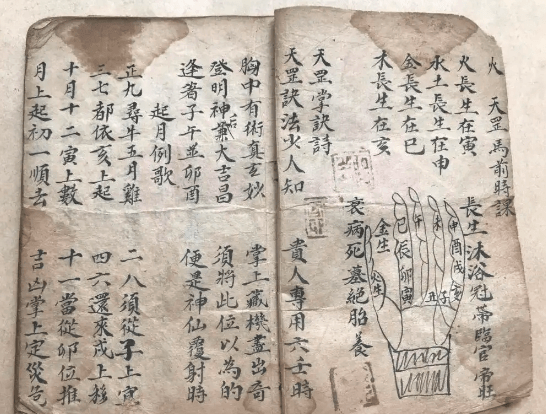 火 天罡馬前時課
火長生在寅 長生沐浴冠帶臨官帝旺
水土長生在申
金長生在巳
木長生在亥
衰病死墓絕胎養
申酉戌亥
未
午
巳辰卯寅
丑子
金生
火生
天罡掌訣詩
天罡訣法少人知 貴人專用六壬時
胸中有術真玄妙 掌上藏機盡出奇
登明神后兼大吉昌 須將此位以為的
逢着子午並卯酉 便是神仙覆射時
起月例歌
正九尋牛五月雞 二八須從子上寅
三七都依亥上起 四六還來戌上移
十月十二寅上數 十一當從卯位推
月上起初一順去 吉凶掌上定災